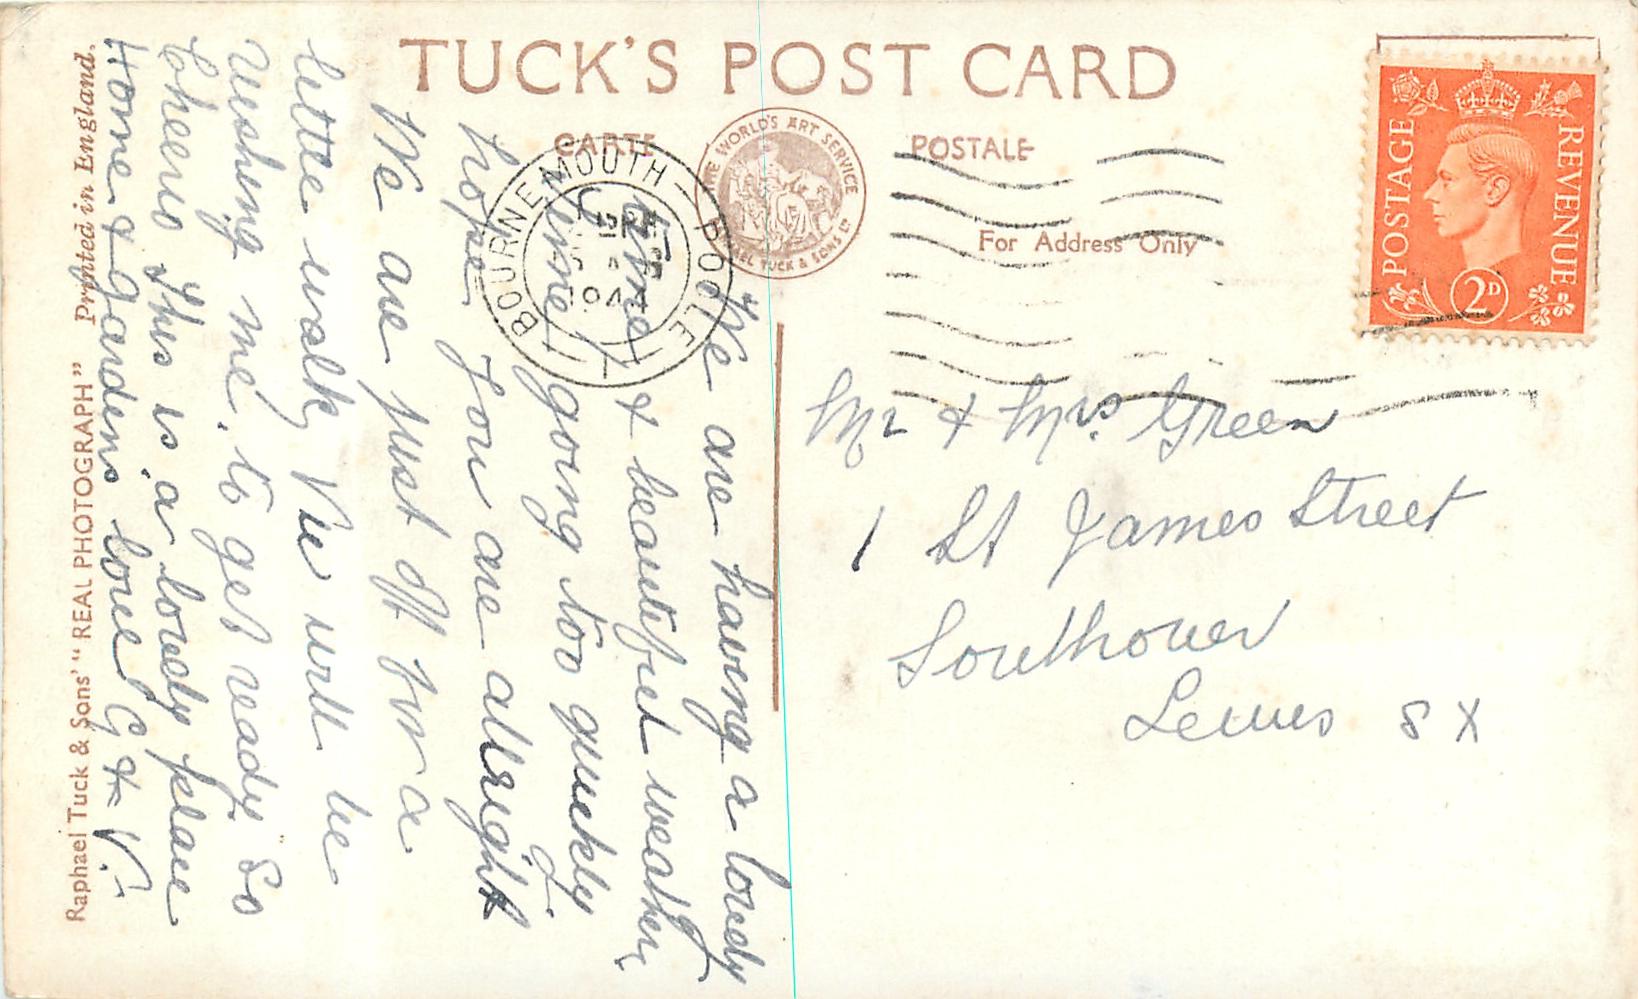 TUCK'S POST CARD
CARTE POSTALE
THE WORLD'S ART SERVICE
RAPHAEL TUCK & SONS LTD
For Address Only
POSTAGE
REVENUE
2D
BOURNEMOUTH - POOLE
We are having a lovely
time, & beautiful weather,
time going too quickly
hope you are allright
We are just off for a
little walk, Vie will be
rushing me, to get ready So
Cheerio This is a lovely place
Home & gardens love G & V.
Mr & Mrs. Green
1 St James Street
Southover
Lewes SX
Raphael Tuck & Sons' "REAL PHOTOGRAPH" Printed in England.